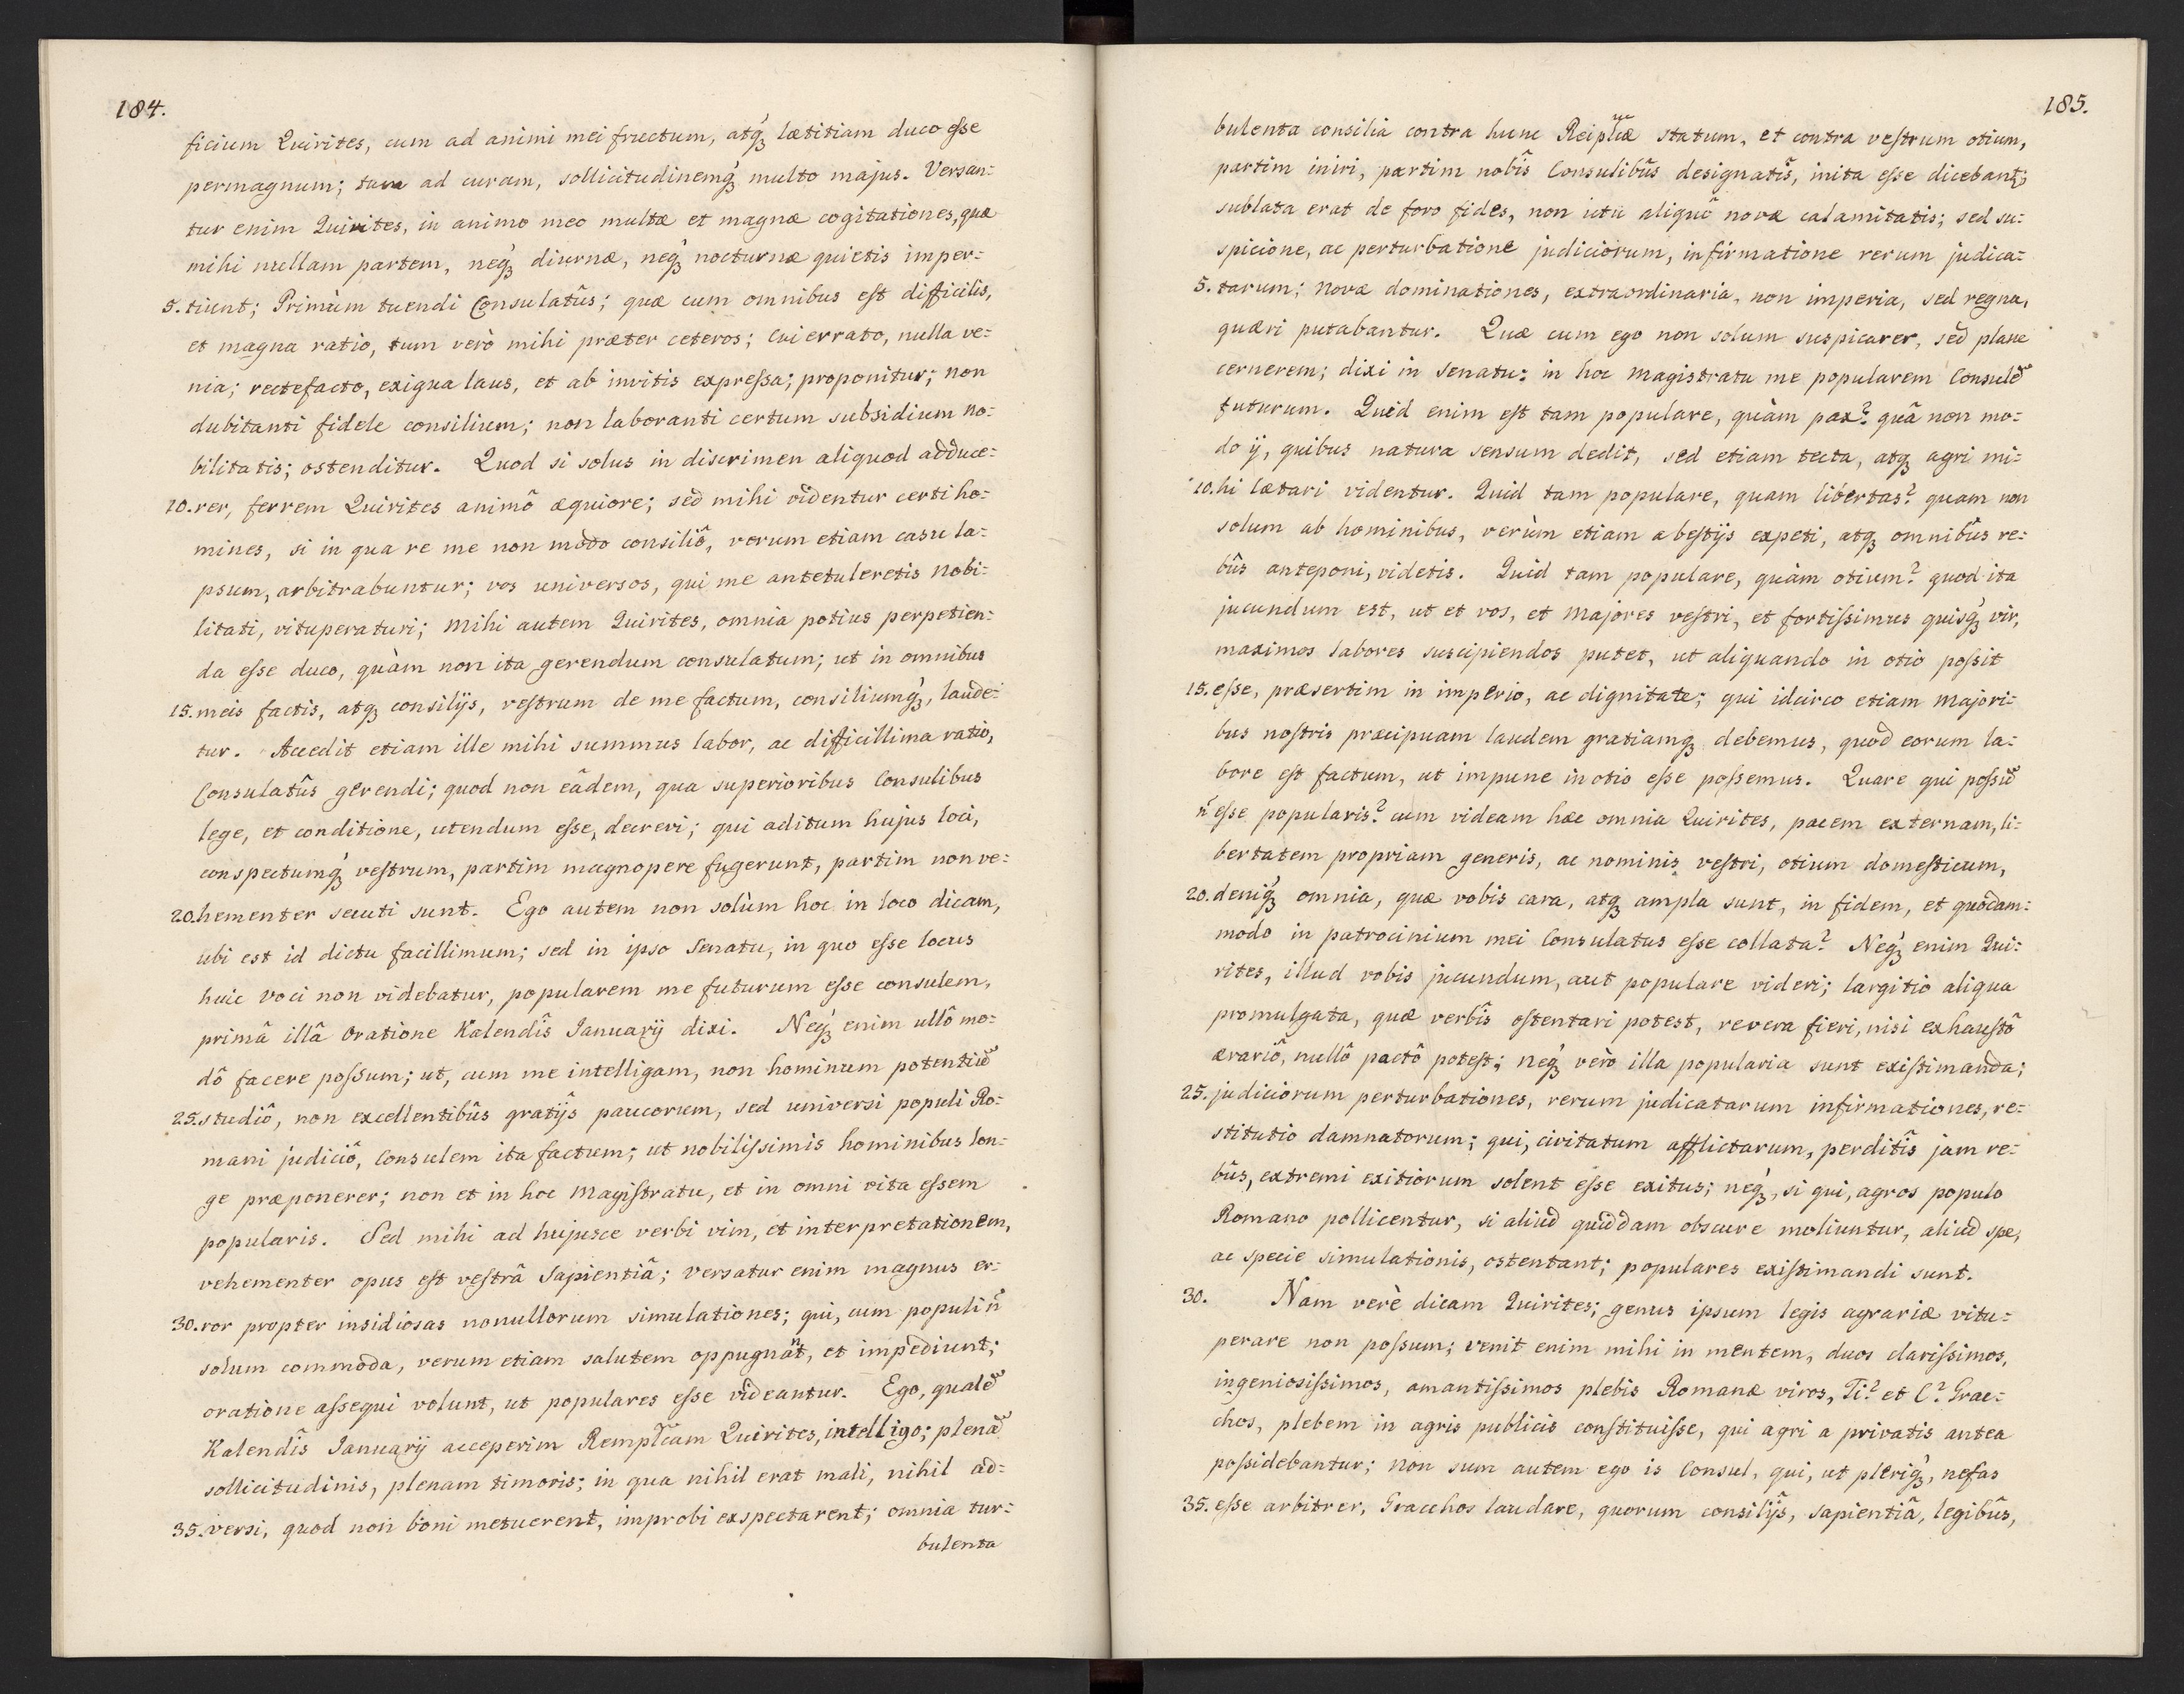 184.
ficium Quirites, cum ad animi mei fructum, atq́ꝫ lætitiam duco eſse
permagnum; tum ad curam, sollicitudinemq́ꝫ multo majus. Versan:
tur enim Quirites, in animo meo multæ et magnæ cogitationes, quæ
mihi nullam partem, neq́ꝫ diurnæ, neq́ꝫ nocturnæ quietis imper:
5. tiunt; Primùm tuendi Consulatûs; quæ cum omnibus eſt difficilis,
et magna ratio, tum verò mihi præter ceteros; Cui errato, nulla ve:
nia; rectefacto, exigua laus, et ab invitis expreſsa; proponitur; non
dubitanti fidele consilium; non laboranti certum subsidium no:
bilitatis; ostenditur. Quod si solus in discrimen aliquod adduce:
10. rer, ferrem Quirites animô æquiore; sed mihi videntur certi ho:
mines, si in qua re me non modo consiliô, verum etiam casu la:
psum, arbitrabuntur; vos universos, qui me antetuleretis nobi:
litati, vituperaturi; Mihi autem Quirites, omnia potius perpetien:
da eſse duco, quàm non ita gerendum consulatum; ut in omnibus
15. meis factis, atqꝫ consilijs, veſtrum de me factum, consiliumq́ꝫ, laude:
tur. Accedit etiam ille mihi summus labor, ac difficillima ratio,
Consulatûs gerendi; quod non eâdem, qua superioribus Consulibus
lege, et conditione, utendum eſse, decrevi; qui aditum hujus loci,
conspectumq́ꝫ veſtrum, partim magnopere fugerunt, partim non ve:
20. hementer secuti sunt. Ego autem non solùm hoc in loco dicam,
ubi est id dictu facillimum; sed in ipso Senatu, in quo eſse locus
huic voci non videbatur, popularem me futurum eſse consulem,
primâ illâ Oratione Kalendîs Januarij dixi. Neq́ꝫ enim ullô mo:
dô facere poſsum; ut, cum me intelligam, non hominum potentiũ
25. studiô, non excellentibûs gratijs paucorum, sed universi populi Ro:
mani judiciô, Consulem ita factum; ut nobiliſsimis hominibus lon:
ge præponerer; non et in hoc Magiſtratu, et in omni vita eſsem
popularis. Sed mihi ad hujusce verbi vim, et interpretationem,
vehementer opus eſt veſtrâ Sapientiâ; versatur enim magnus er:
30. ror propter insidiosas nonullorum simulationes; qui, cum populi ñ
solum commoda, verum etiam salutem oppugnant, et impediunt;
oratione aſsequi volunt, ut populares eſse videantur. Ego, qualẽ
Kalendîs Januarij acceperim Remplc̃am Quirites, intelligo; plenã
sollicitudinis, plenam timoris; in qua nihil erat mali, nihil ad:
35. versi, quod non boni metuerent, improbi exspectarent; omnia tur:
bulenta
185.
bulenta consilia contra hunc Reiplicæ statum, et contra veſtrum otium,
partim iniri, partim nobîs Consulibûs designatîs, inita eſse dicebant;
sublata erat de foro fides, non ictu aliquô novæ calamitatis; sed su:
spicione, ac perturbatione judiciorum, infirmatione rerum judica:
5. tarum; novæ dominationes, extraordinaria, non imperia, sed regna,
quæri putabantur. Quæ cum ego non solum suspicarer, sed plane
cernerem; dixi in Senatu: in hoc Magistratu me popularem Consulẽ
futurum. Quid enim eſt tam populare, quàm pax? quâ non mo:
do ij, quibus natura sensum dedit, sed etiam tecta, atqꝫ agri mi:
10. hi lætari videntur. Quid tam populare, quam libertas? quam non
solum ab hominibus, verùm etiam a beſtijs expeti, atqꝫ omnibûs re:
bûs anteponi, videtis. Quid tam populare, quàm otium? quod ita
jucundum est, ut et vos, et Majores veſtri, et fortiſsimus quisq́ꝫ vir,
maximos labores suscipiendos putet, ut aliquando in otio poſsit
15. eſse, præsertim in imperio, ac dignitate; qui idcirco etiam Majori:
bus noſtris præcipuam laudem gratiamqꝫ debemus, quod eorum la:
bore eſt factum, ut impune in otio eſse poſsemus. Quare qui poſsũ
ñ eſse popularis? cum videam hæc omnia Quirites, pacem externam, li:
bertatem propriam generis, ac nominis veſtri, otium domeſticum,
20. deniq́ꝫ omnia, quæ vobis cara, atqꝫ ampla sunt, in fidem, et quodam:
modo in patrocinium mei Consulatus eſse collata? Neq́ꝫ enim Qui:
rites, illud vobis jucundum, aut populare videri; largitio aliqua
promulgata, quæ verbîs oſtentari potest, revera fieri, nisi exhauſtô
ærariô, nullô pactô poteſt; neq́ꝫ verò illa popularia sunt exiſtimanda;
25. judiciorum perturbationes, rerum judicatarum infirmationes, re:
stitutio damnatorum; qui, civitatum afflictarum, perditîs jam re:
bûs, extremi exitiorum solent eſse exitus; neq́ꝫ, si qui, agros populo
Romano pollicentur, si aliud quiddam obscure moliuntur, aliud spe,
ac specie simulationis, ostentant; populares exiſtimandi sunt.
30. Nam verè dicam Quirites; genus ipsum legis agrariæ vitu:
perare non poſsum; venit enim mihi in mentem, duos clariſsimos,
ingeniosiſsimos, amantiſsimos plebis Romanæ viros, Ti? et C? Grac:
chos, plebem in agris publicis conſtituiſse, qui agri a privatis antea
poſsidebantur; non sum autem ego is Consul, qui, ut pleriq́ꝫ, nefas
35. eſse arbitrer, Gracchos laudare, quorum consilijs, sapientiâ, legibûs,